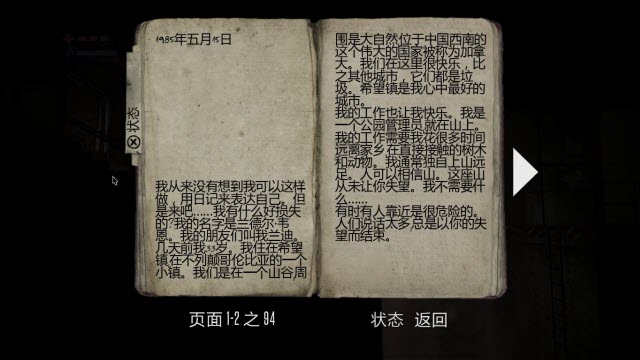 1985年五月15日
我从来没有想到我可以这样
做，用日记来表达自己。但
是来吧……我有什么好损失
的?我的名字是兰德尔.韦
恩。我的朋友们叫我兰迪。
几天前我33岁。我住在希望
镇,在不列颠哥伦比亚的一个
小镇。我们是在一个山谷周
围是大自然位于中国西南的
这个伟大的国家被称为加拿
大。我们在这里很快乐，比
之其他城市，它们都是垃
圾。希望镇是我心中最好的
城市。
我的工作也让我快乐。我是
一个公园管理员,就在山上。
我的工作需要我花很多时间
远离家乡在直接接触的树木
和动物。我通常独自上山远
足。人可以相信山。这座山
从未让你失望。我不需要什
么……
有时有人靠近是很危险的。
人们说话太多总是以你的失
望而结束。
状态
页面 1-2 之 94
状态 返回